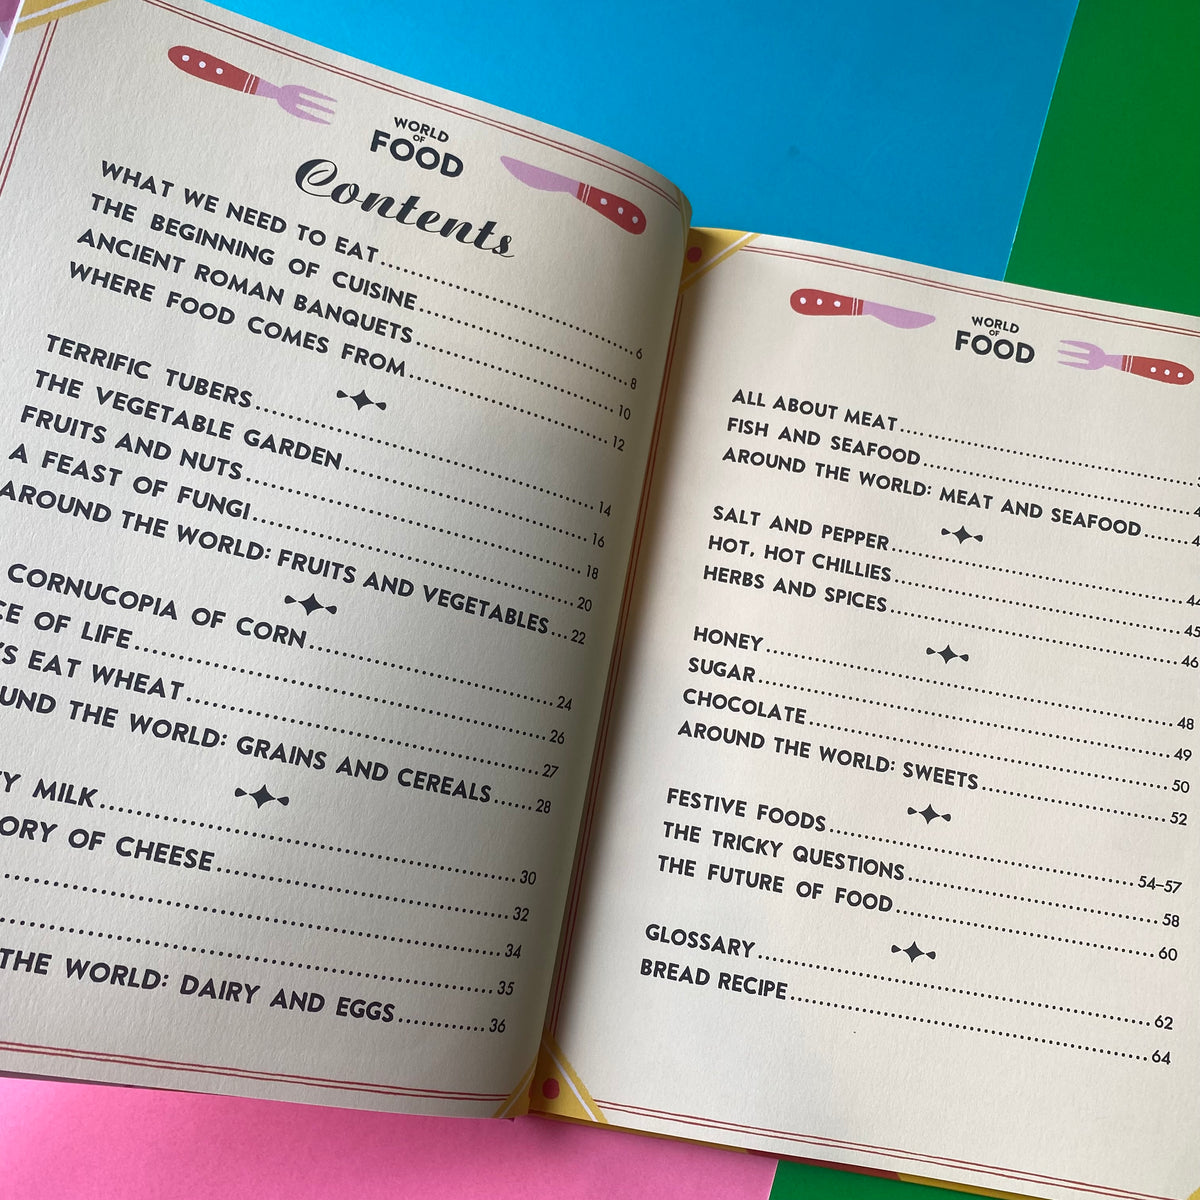 WORLD
OF
FOOD
Contents
WHAT WE NEED TO EAT........................6
THE BEGINNING OF CUISINE........................8
ANCIENT ROMAN BANQUETS........................10
WHERE FOOD COMES FROM........................12
TERRIFIC TUBERS........................14
THE VEGETABLE GARDEN........................16
FRUITS AND NUTS........................18
A FEAST OF FUNGI........................20
AROUND THE WORLD: FRUITS AND VEGETABLES...22
CORNUCOPIA OF CORN........................24
OF LIFE........................26
EAT WHEAT........................27
THE WORLD: GRAINS AND CEREALS......28
MILK........................30
OF CHEESE........................32
........................34
........................35
THE WORLD: DAIRY AND EGGS............36
WORLD
OF
FOOD
ALL ABOUT MEAT........................
FISH AND SEAFOOD........................
AROUND THE WORLD: MEAT AND SEAFOOD......
SALT AND PEPPER........................44
HOT, HOT CHILLIES........................45
HERBS AND SPICES........................46
HONEY........................48
SUGAR........................49
CHOCOLATE........................50
AROUND THE WORLD: SWEETS........................52
FESTIVE FOODS........................54–57
THE TRICKY QUESTIONS........................58
THE FUTURE OF FOOD........................60
GLOSSARY........................62
BREAD RECIPE........................64